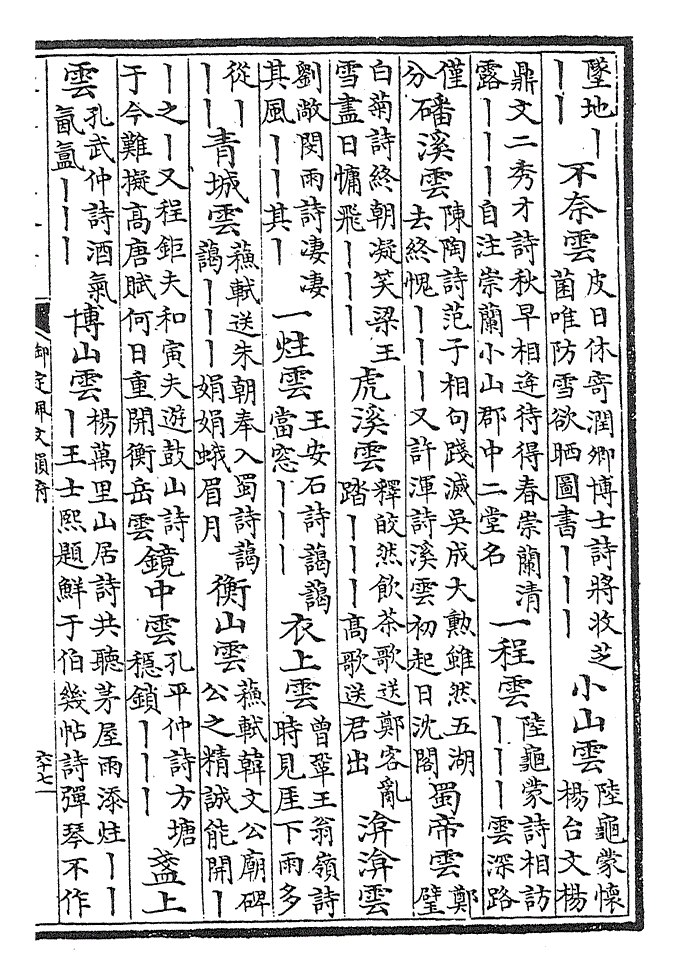 墜地｜
｜｜
不奈雲
皮日休寄潤卿博士詩將收芝
菌唯防雪欲晒圖書｜｜｜
小山雲
陸龜蒙懷
楊台文楊
鼎文二秀才詩秋早相逢待得春崇蘭清
露｜｜｜自注崇蘭小山郡中二堂名
一程雲
陸龜蒙詩相訪
｜｜｜雲深路
僅
分
磻溪雲
陳陶詩范子相句踐滅吳成大勲雖然五湖
去終愧｜｜｜又許渾詩溪雲初起日沈閣
蜀帝雲
鄭
璧
白菊詩終朝凝笑梁王
雪盡日慵飛｜｜｜
虎溪雲
釋皎然飲茶歌送鄭容亂
踏｜｜｜高歌送君出
渰渰雲
劉敞閔雨詩凄凄
其風｜｜其｜
一炷雲
王安石詩藹藹
當窓｜｜｜
衣上雲
曾鞏王翁嶺詩
時見厓下雨多
從｜
｜｜
青城雲
蘇軾送朱朝奉入蜀詩藹
藹｜｜｜娟娟蛾眉月
衡山雲
蘇軾韓文公廟碑
公之精誠能開｜
｜之｜又程鉅夫和寅夫遊鼓山詩
于今難擬高唐賦何日重開衡岳雲
鏡中雲
孔平仲詩方塘
穩鎖｜｜｜
盞上
雲
孔武仲詩酒氣
氤氳｜｜｜
博山雲
楊萬里山居詩共聽茅屋雨添炷｜｜
｜王士熙題鮮于伯幾帖詩彈琴不作
御定佩文韻府
六十七